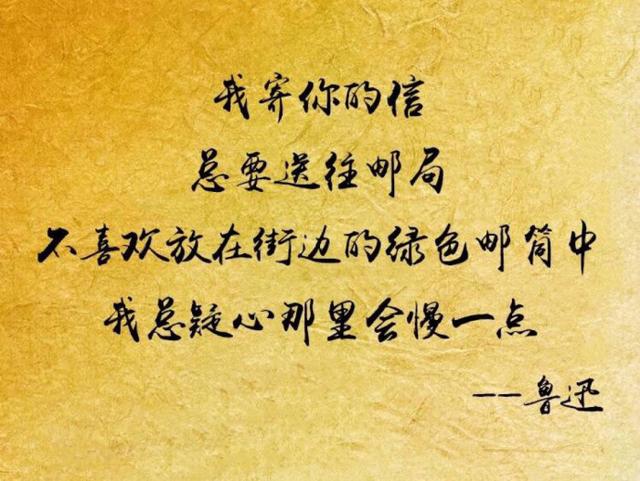 我寄你的信
总要送往邮局
不喜欢放在街边的绿色邮筒中
我总疑心那里会慢一点
--鲁迅